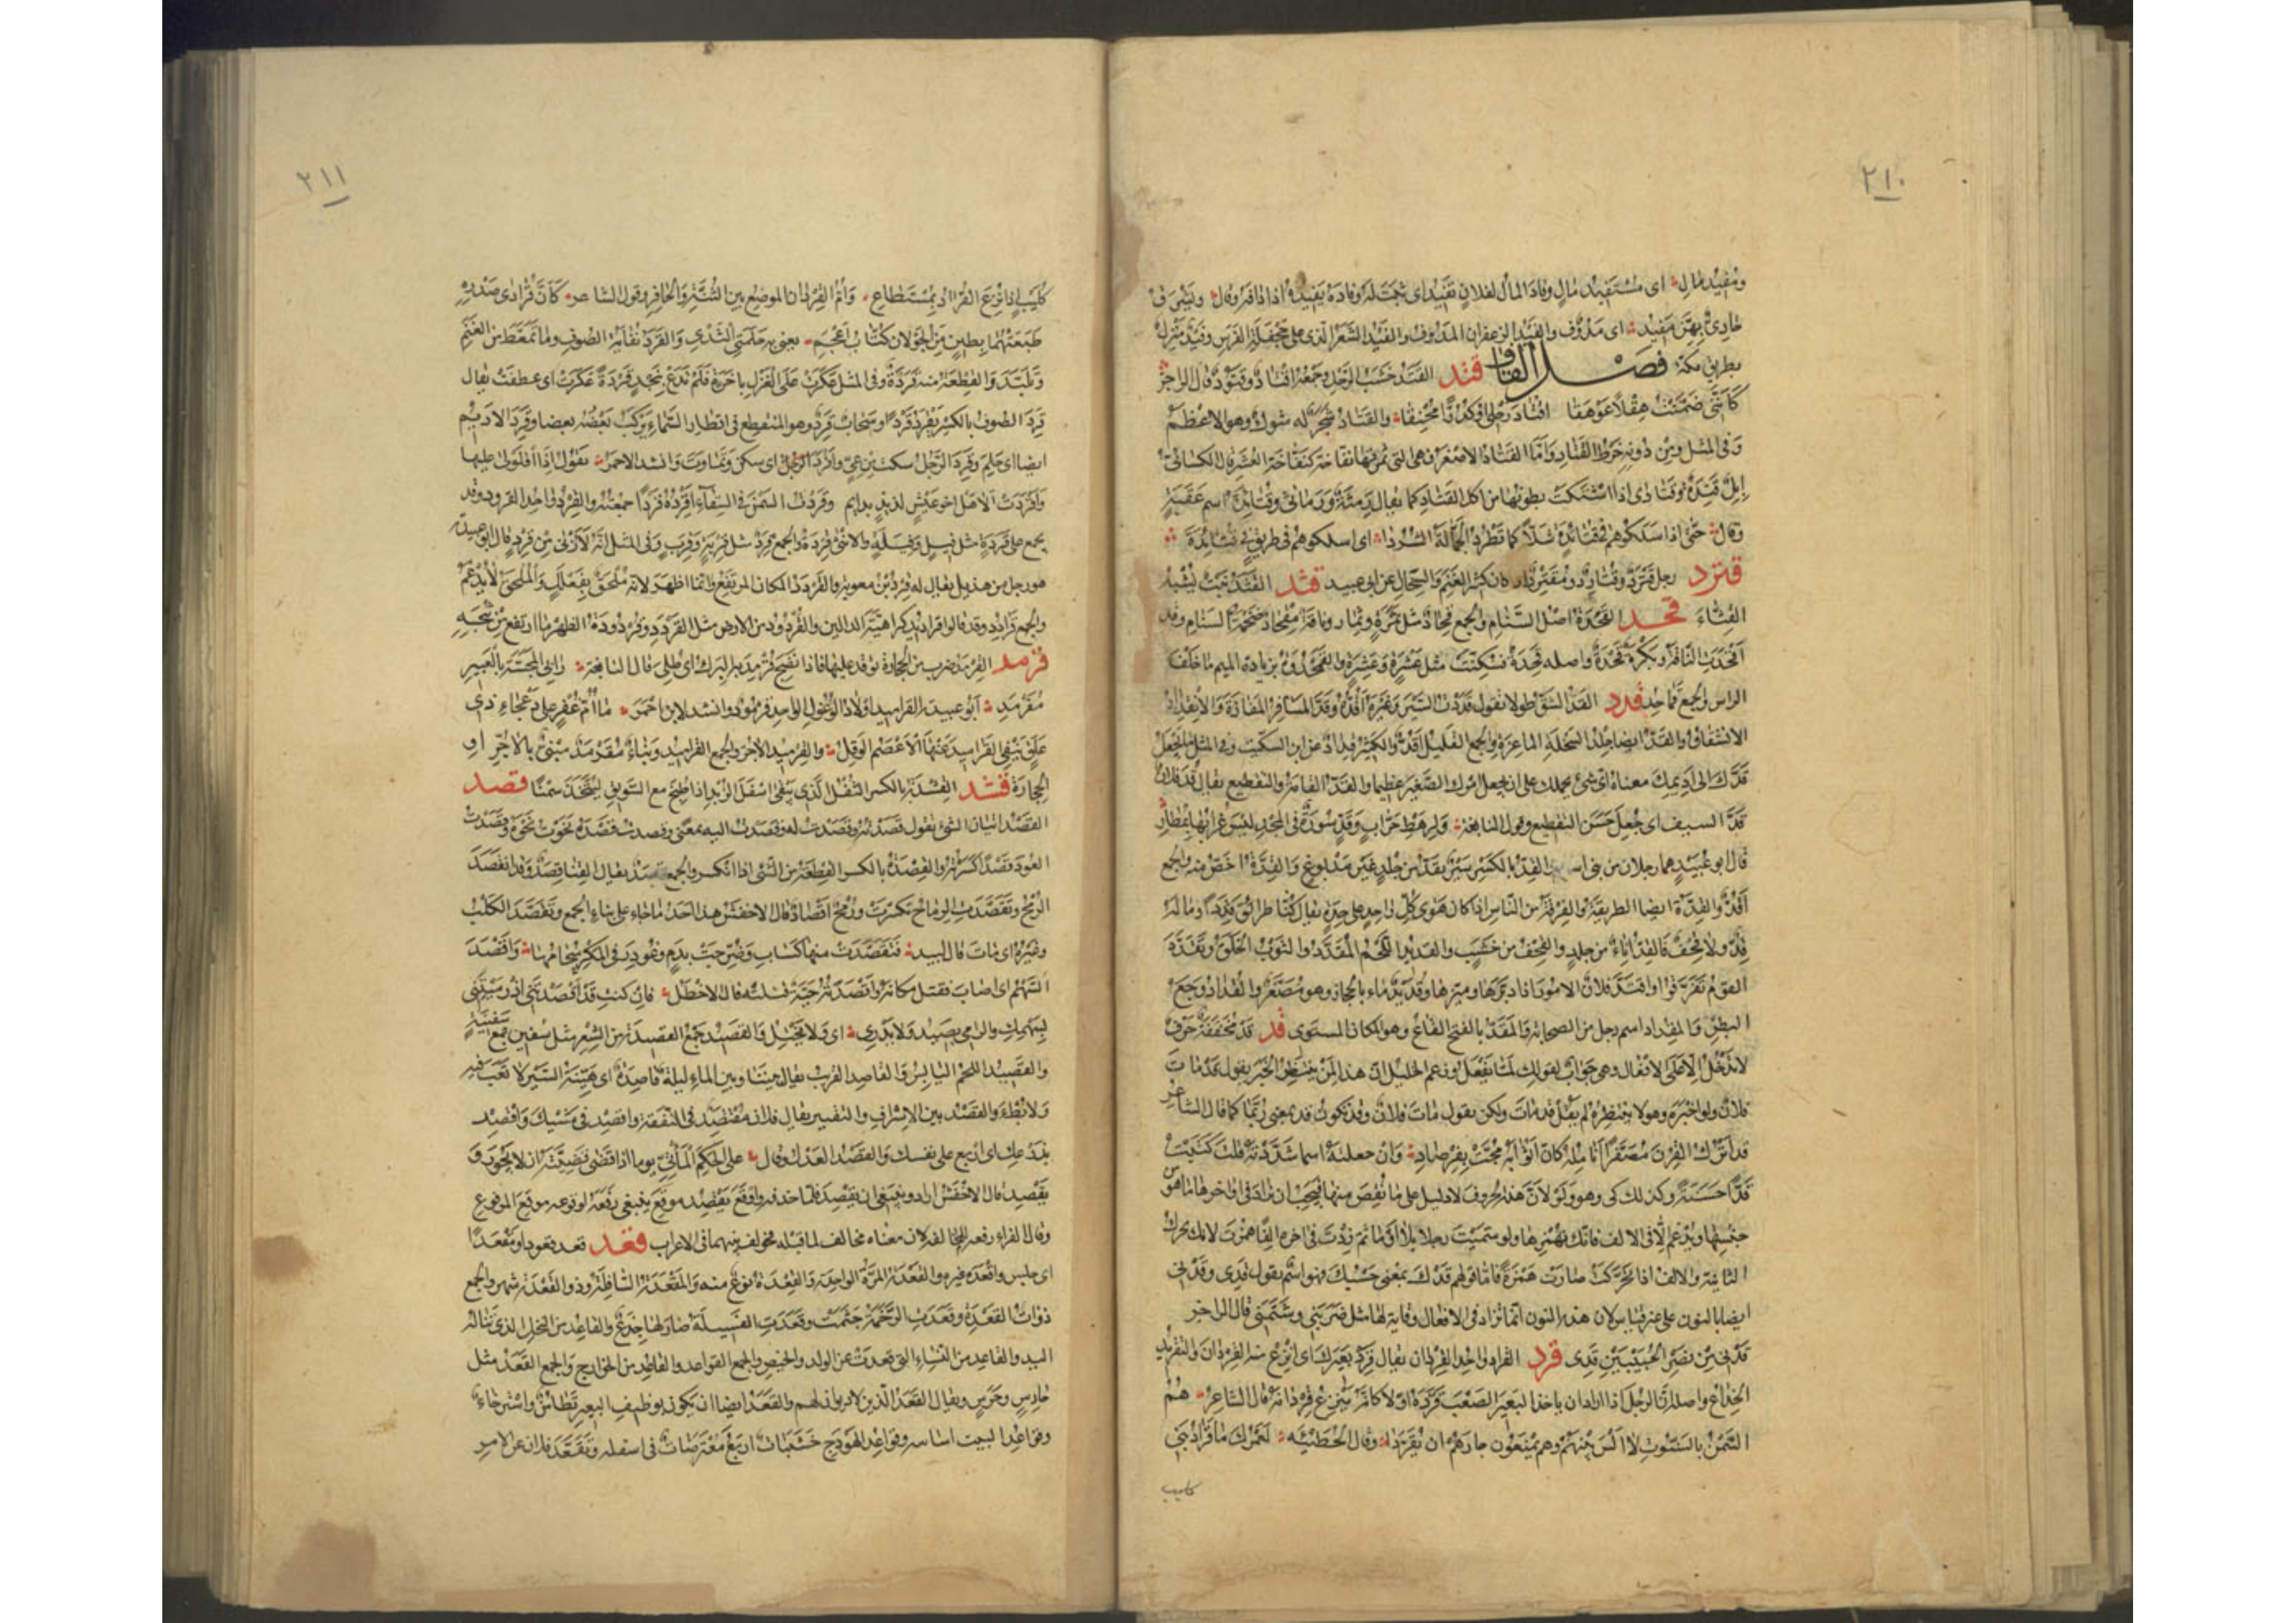 ٢١٠
ومفيد مال اى مستفيد مال وفاد المال لفلان يفيد اى ثبت له وفاده يفيده اذا دافه وقال ويشرف
جادى بهن مفيد اى مدوف والفيد الزعفران المدوف والفيد الشعر الذى على جحفلة الفرس وفيد منزل
بطريق مكة فصل القاف قتد القتد خشب الرحل وجمعه اقتاد وقتود قال الراجز
كأننى ضمنت هقلا عوهقا اقتاد رحلى او كدرا محنقا والقتاد شجر له شوك وهو الاعظم
وفى المثل ومن دونه خرط القتاد واما القتاد الاصغر فهى التى ثمرتها نفاخة كنفاخة العشر قال الكسائى
ابل قتدة وقتادى اذا اشتكت بطونها من اكل القتاد كما يقال رمثة ورماثى وقتائدة اسم عقبة
وقال حتى اذا سلكوهم فى قتائدة شلا كما تطرد الجمالة الشردا اى اسلكوهم فى طريق فى قتائدة
قترد رجل قترد وقتارد ومقترد اذا كان كثير الغنم والسخال عن ابى عبيد قثد القثد نبت يشبه
القثاء قحد القحدة اصل السنام والجمع قحاد مثل ثمرة وثمار وناقة مقحاد ضخمة السنام وقد
اقحدت الناقة وبكرة قحدة واصله قحدة فسكنت مثل عشرة وعشرة والقمحدوة بزيادة الميم ما خلف
الراس والجمع قماحد قدد القد الشق طولا تقول قددت السير وغيره اقده وقد المسافر المفازة والانقداد
الانشقاق والقد ايضا جلد السخلة الماعزة والجمع القليل اقد والكثير قداد عن ابن السكيت وفى المثل ما يجعل
قدك الى اديمك معناه اى شئ يحملك على ان تجعل امرك الصغير عظيما والقد القامة والتقطيع يقال قد فلان
قد السيف اى جعل حسن التقطيع وقول النابغة ولرهط حراب وقد سورة فى المجد ليس غرابها بمطار
قال ابو عبيد هما رجلان من بنى اسد والقد بالكسر سير يقد من جلد غير مدبوغ والقدة اخص منه والجمع
اقد والقدة ايضا الطريقة والفرقة من الناس اذا كان هوى كل واحد على حدة يقال كنا طرائق قددا وما له
قد ولا قحف فالقد اناء من جلد والقحف من خشب والقديد اللحم المقدد والثوب الخلق وتقدد
القوم تفرقوا واقتد فلان الامور اذا دبرها وميزها وقديد ماء بالحجاز وهو مصغر والقداد وجع
البطن والمقداد اسم رجل من الصحابة والمقد بالفتح القاع وهو المكان المستوى قد قد مخففة حرف
لا تدخل الا على الافعال وهى جواب لقولك لما يفعل وزعم الخليل ان هذا لمن ينتظر الخبر يقول قد مات
فلان ولو اخبره وهو لا ينتظره لم يقل قد مات ولكن يقول مات فلان وقد تكون قد بمعنى ربما كما قال الشاعر
قد اترك القرن مصفرا انامله كان اثوابه مجت بفرصاد وان جعلته اسما شددته قلت كتبت
قدا حسنة وكذلك كى وهو ولو لان هذه الحروف لا دليل على ما نقص منها فيجب ان تزاد فى اواخرها ما هو من
جنسها ويدغم الا فى الالف فانك تهمزها ولو سميت رجلا بلا او ما ثم زدت فى اخره الفا همزت لانك تحرك
الثانية والالف اذا تحركت صارت همزة فاما قولهم قدك بمعنى حسبك فهو اسم تقول قدى وقدنى
ايضا بالنون على غير قياس لان هذه النون انما تزاد فى الافعال وقاية لها مثل ضربنى وشتمنى قال الراجز
قدنى من نصر الخبيبين قدى قرد القراد واحد القردان يقال قرد بعيرك اى انزع منه القردان والتقريد
الخداع واصله ان الرجل اذا اراد ان ياخذ البعير الصعب قرده اولا كانه ينزع قردانه قال الشاعر هم
السمن بالسنوت لا الس بينهم وهم يمنعون جارهم ان يقردا وقال الحطيئة لعمرك ما قراد بنى
كليب
٢١١
كليب اذا نزع القراد بمستطاع وام القردان الموضع بين الثنة والحافر وقول الشاعر كأن قرادى صدره
طبعتهما بطين من الجولان كتاب اعجم يعنى به حلمتى الثدى والقرد نفاية الصوف وما تمعط من الغنم
وتلبد والقطعة منه قردة وفى المثل عكرت على الغزل باخرة فلم تدع بنجد قردة عكرت اى عطفت يقال
قرد الصوف بالكسر يقرد قردا وسحاب قرد وهو المتقطع فى اقطار السماء يركب بعضه بعضا وقرد الاديم
ايضا اى حلم وقرد الرجل سكت من عى واقرد الرجل اى سكن وتماوت وانشد الاحمر تقول اذا اقلولى عليها
واقردت الا هل اخو عيش لذيذ بدايم وقردت السمن فى السقاء اقرده قردا جمعته والقرد واحد القرود وقد
يجمع على قردة مثل فيل وفيلة والانثى قردة والجمع قرد مثل قربة وقرب وفى المثل انه لازنى من قرد قال ابو عبيدة
هو رجل من هذيل يقال له قرد بن معوية والقردد المكان المرتفع وانما اظهر لانه ملحق بفعلل والملحق لا يدغم
والجمع قرادد وقد قالوا قراديد كراهية الدالين والقردود من الارض مثل القردد وقردودة الظهر ما ارتفع من ثبجه
قرمد القرمد ضرب من الحجارة يوقد عليها فاذا نضج قرمد به البرك اى طلى قال النابغة رابى المجسة بالعبير
مقرمد ابو عبيد القراميد اولاد الوعول الواحد قرمود وانشد لابن احمر ما ام غفر على دعجاء ذى
علق ينفى القراميد عنها الاعصم الوقل والقرميد الاجر والجمع القراميد وبناء مقرمد مبنى بالاجر او
الحجارة قشد القشدة بالكسر الثفل الذى يبقى اسفل الزبد اذا طبخ مع السويق ليتخذ سمنا قصد
القصد اتيان الشئ تقول قصدته وقصدت له وقصدت اليه بمعنى وقصدت قصده نحوت نحوه وقصدت
العود قصدا كسرته والقصدة بالكسر القطعة من الشئ اذا انكسر والجمع قصد يقال القنا قصد وقد انقصد
الرمح وتقصدت الرماح تكسرت ورمح اقصاد قال الاخفش هذا احد ما جاء على بناء الجمع وتقصد الكلب
وغيره اى مات قال لبيد فتقصدت منها كساب وضرجت بدم وغودر فى المكر سخامها واقصد
السهم اى اصاب فقتل مكانه واقصدته حية قتلته قال الاخطل فان كنت قد اقصدتنى اذ رميتنى
بسهمك والرامى يصيد ولا يدرى اى ولا يختل والقصيد جمع القصيدة من الشعر مثل سفين جمع سفينة
والقصيد اللحم اليابس والقاصد القريب يقال بيننا وبين الماء ليلة قاصدة اى هينة السير لا تعب فيه
ولا بطء والقصد بين الاسراف والتقتير يقال فلان مقتصد فى النفقة واقصد فى مشيك واقصد
بذرعك اى اربع على نفسك والقصد العدل وقال على الحكم المأتى يوما اذا قضى قضيته ان لا يجور و
يقصد قال الاخفش اراد وينبغى ان يقصد فلما حذفه واوقع يقصد موقع ينبغى رفعه لوقوعه موقع المرفوع
وقال الفراء رفعه للمخالفة لان معناه مخالف لما قبله فخولف بينهما فى الاعراب قعد قعد قعودا ومقعدا
اى جلس واقعده غيره والقعدة المرة الواحدة والقعدة نوع منه والمقعدة السافلة وذو القعدة شهر والجمع
ذوات القعدة وقعدت الرخمة جثمت وقعدت الفسيلة صار لها جذع والقاعد من النخل الذى تناله
اليد والقاعد من النساء التى قعدت عن الولد والحيض والجمع القواعد والقاعد من الخوارج والجمع القعد مثل
حارس وحرس ويقال القعد الذين لا ديوان لهم والقعد ايضا ان يكون بوظيف البعير تطامن واسترخاء
وقواعد البيت اساسه وقواعد الهودج خشبات اربع معترضات فى اسفله وتقعد فلان عن الامر